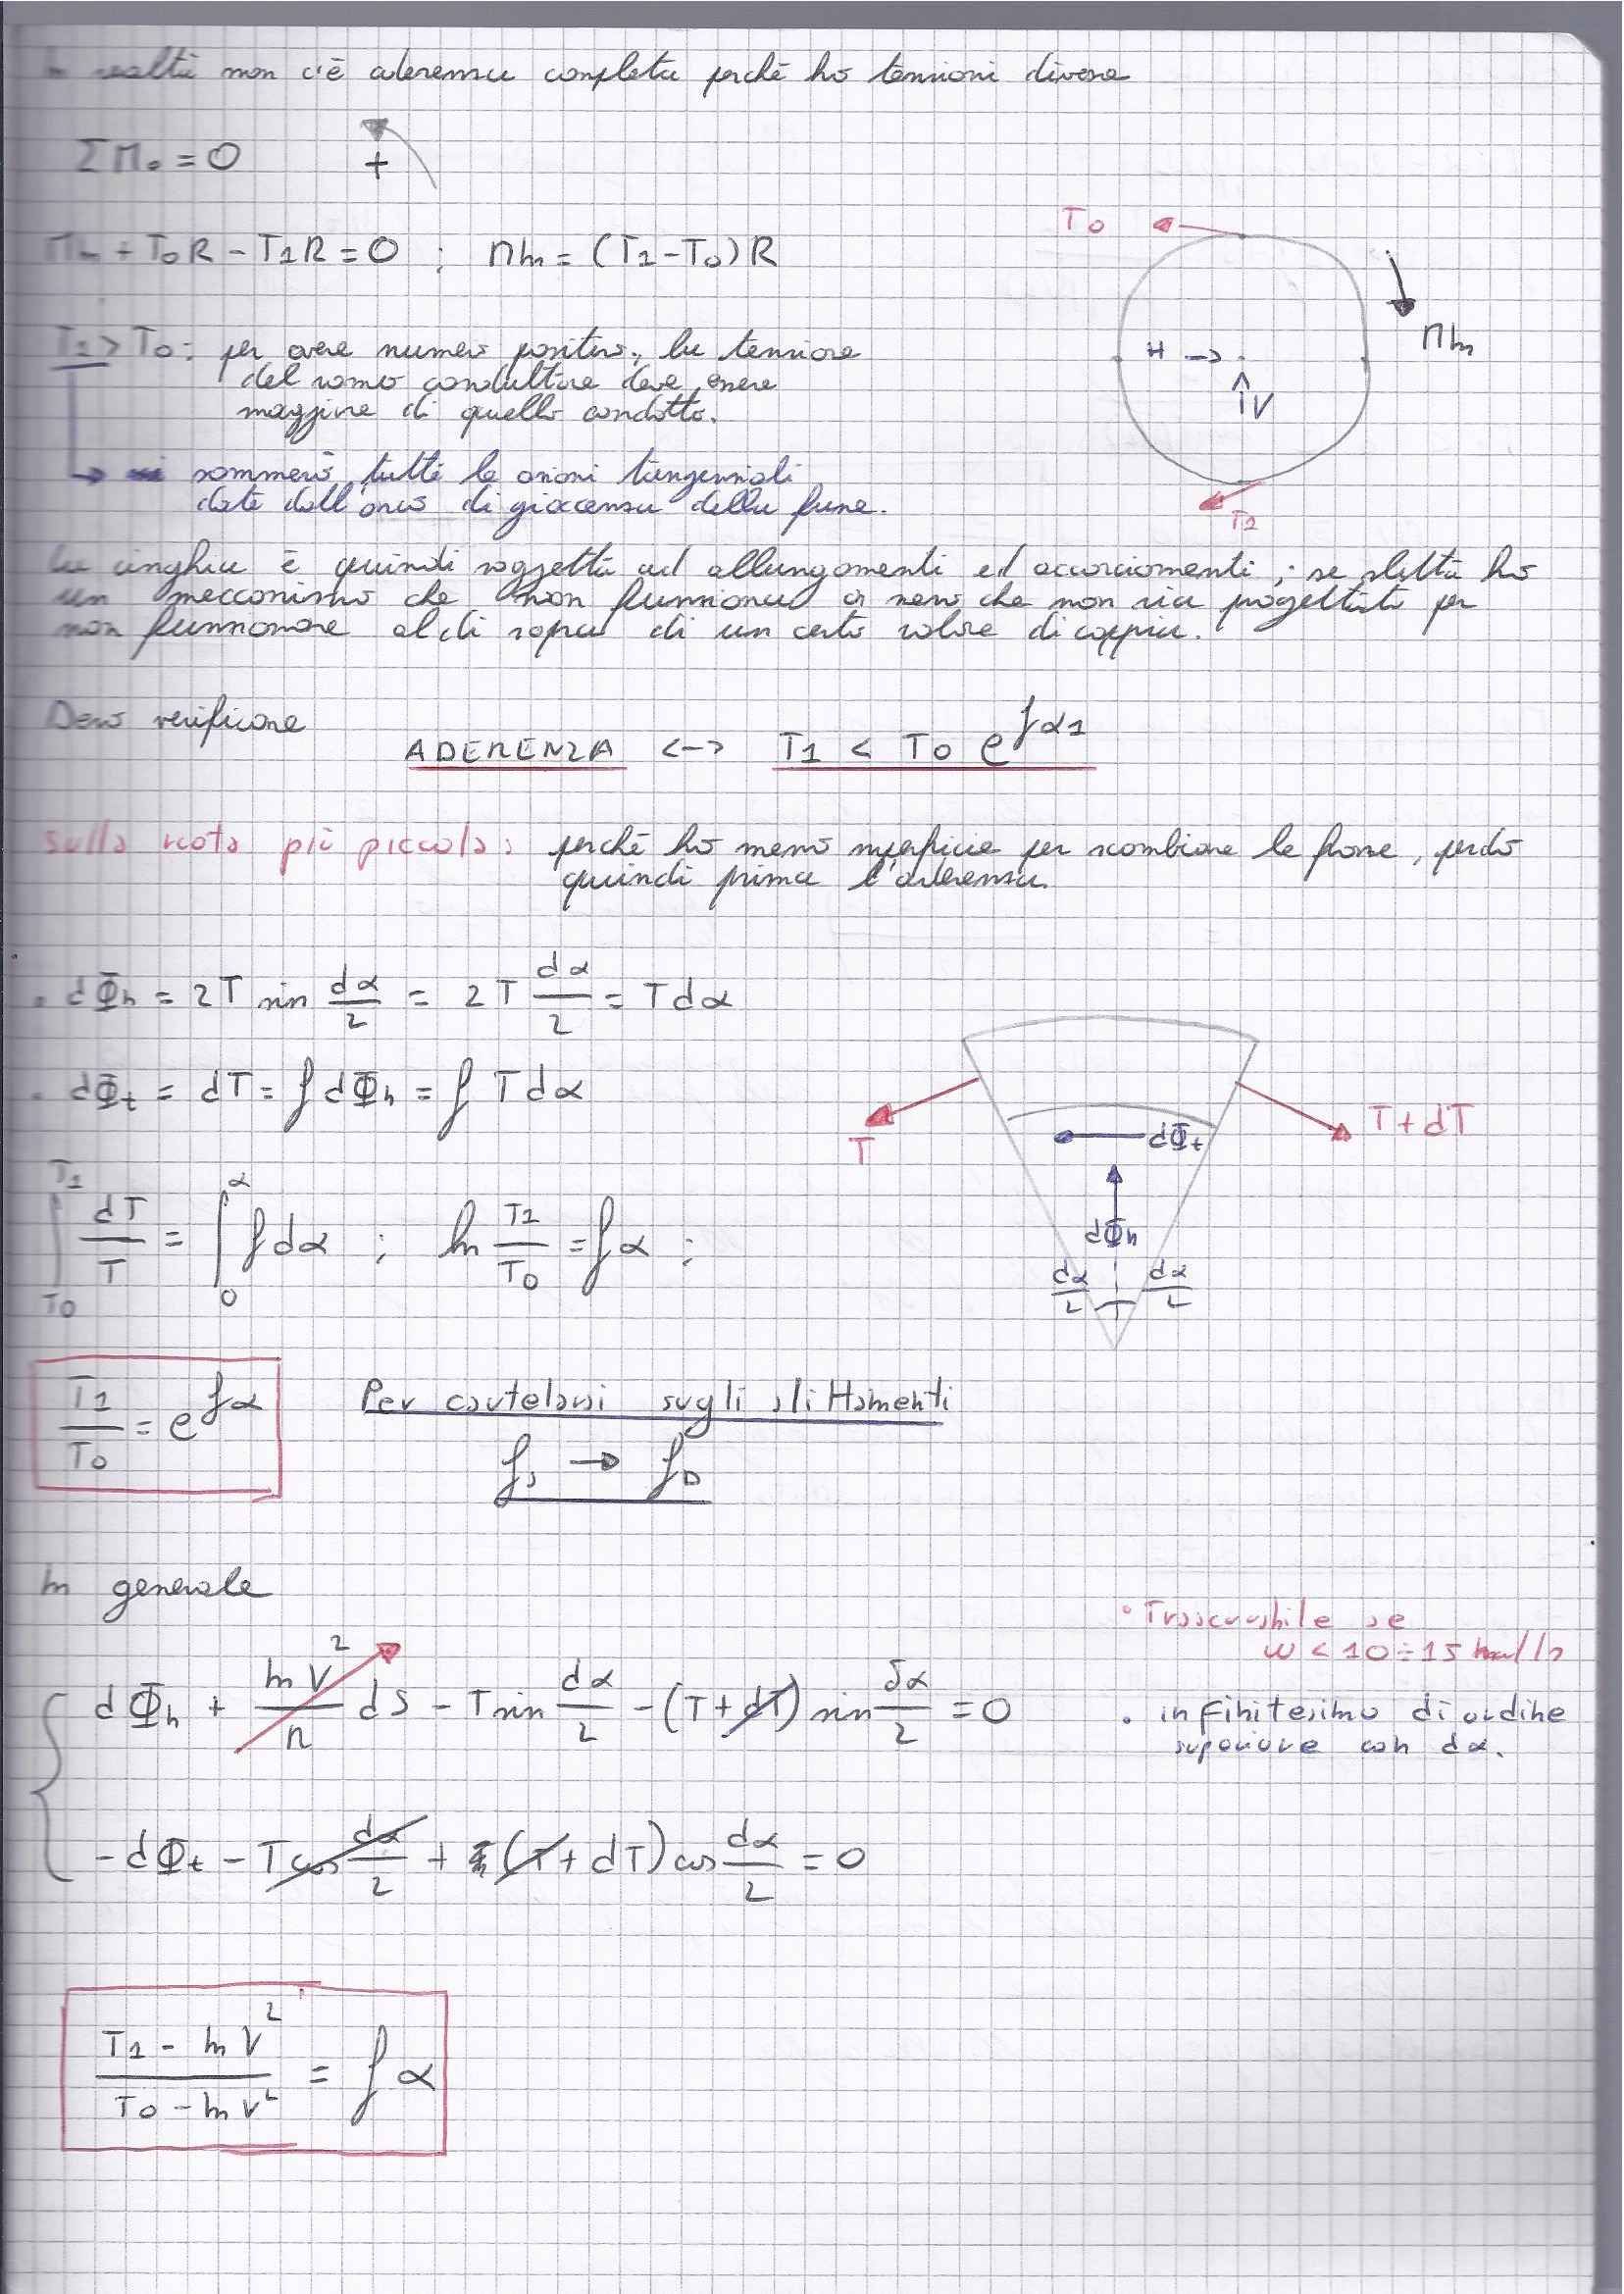 In realtà non c'è aderenza completa perchè ho tensioni diverse
ΣM₀ = 0
+
Mm + T0R - T1R = 0 ; Mm = (T1 - T0) R
T0
Mm
H →
↑ V
T1
T1 > T0 : per avere numero positivo, la tensione
del ramo conduttore deve essere
maggiore di quello condotto.
→ sommerò tutte le azioni tangenziali
date dall'arco di giacenza della fune.
La cinghia è quindi soggetta ad allungamenti ed accorciamenti ; se slitta ho
un meccanismo che non funziona a meno che non sia progettato per
non funzionare al di sopra di un certo valore di coppia.
Devo verificare
ADERENZA <-> T1 < T0 e^fα1
sulla ruota più piccola : perchè ho meno superficie per scambiare le forze, perdo
quindi prima l'aderenza.
• dΦn = 2T sin dα/2 = 2T dα/2 = T dα
• dΦt = dT = f dΦn = f T dα
T
T + dT
dΦt
dΦn
dα/2 dα/2
∫_T0^T1 dT/T = ∫_0^α f dα ; ln T1/T0 = fα ;
T1/T0 = e^fα
Per cautelarsi sugli slittamenti
fs → fD
In generale
• Trascurabile se
w < 10÷15
dΦn + m v²/r dS - T sin dα/2 - (T + dT) sin δα/2 = 0
• infinitesimo di ordine
superiore con dα.
- dΦt - T cos dα/2 + (T + dT) cos dα/2 = 0
T1 - m V²/T0 - m V² = f α